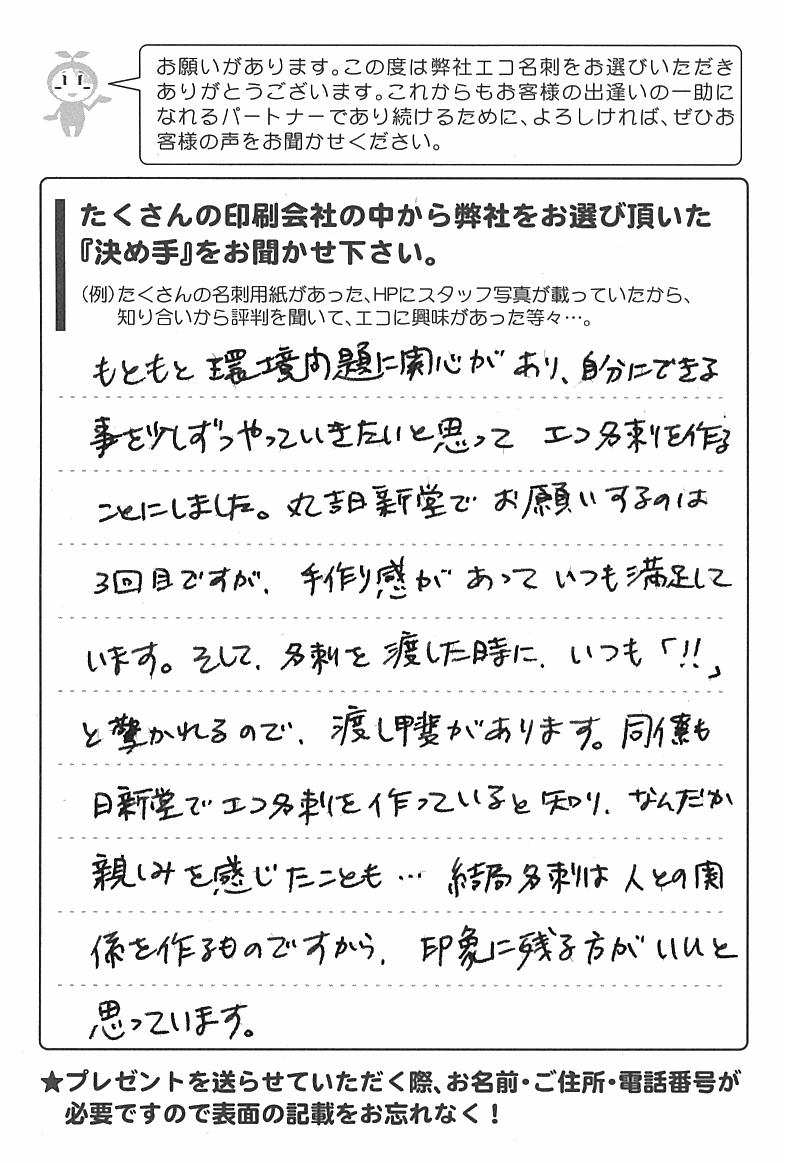 お願いがあります。この度は弊社エコ名刺をお選びいただき
ありがとうございます。これからもお客様の出逢いの一助に
なれるパートナーであり続けるために、よろしければ、ぜひお
客様の声をお聞かせください。
たくさんの印刷会社の中から弊社をお選び頂いた
『決め手』をお聞かせ下さい。
(例)たくさんの名刺用紙があった、HPにスタッフ写真が載っていたから、
知り合いから評判を聞いて、エコに興味があった等々…。
もともと環境問題に関心があり、自分にできる
事を少しずつやっていきたいと思って エコ名刺を作る
ことにしました。丸吉日新堂でお願いするのは
3回目ですが、手作り感があっていつも満足して
います。そして、名刺を渡した時に、いつも「!!」
と驚かれるので、渡し甲斐があります。同僚も
日新堂でエコ名刺を作っていると知り、なんだか
親しみを感じたことも… 結局名刺は人との関
係を作るものですから、印象に残る方がいいと
思っています。
★プレゼントを送らせていただく際、お名前・ご住所・電話番号が
必要ですので表面の記載をお忘れなく!